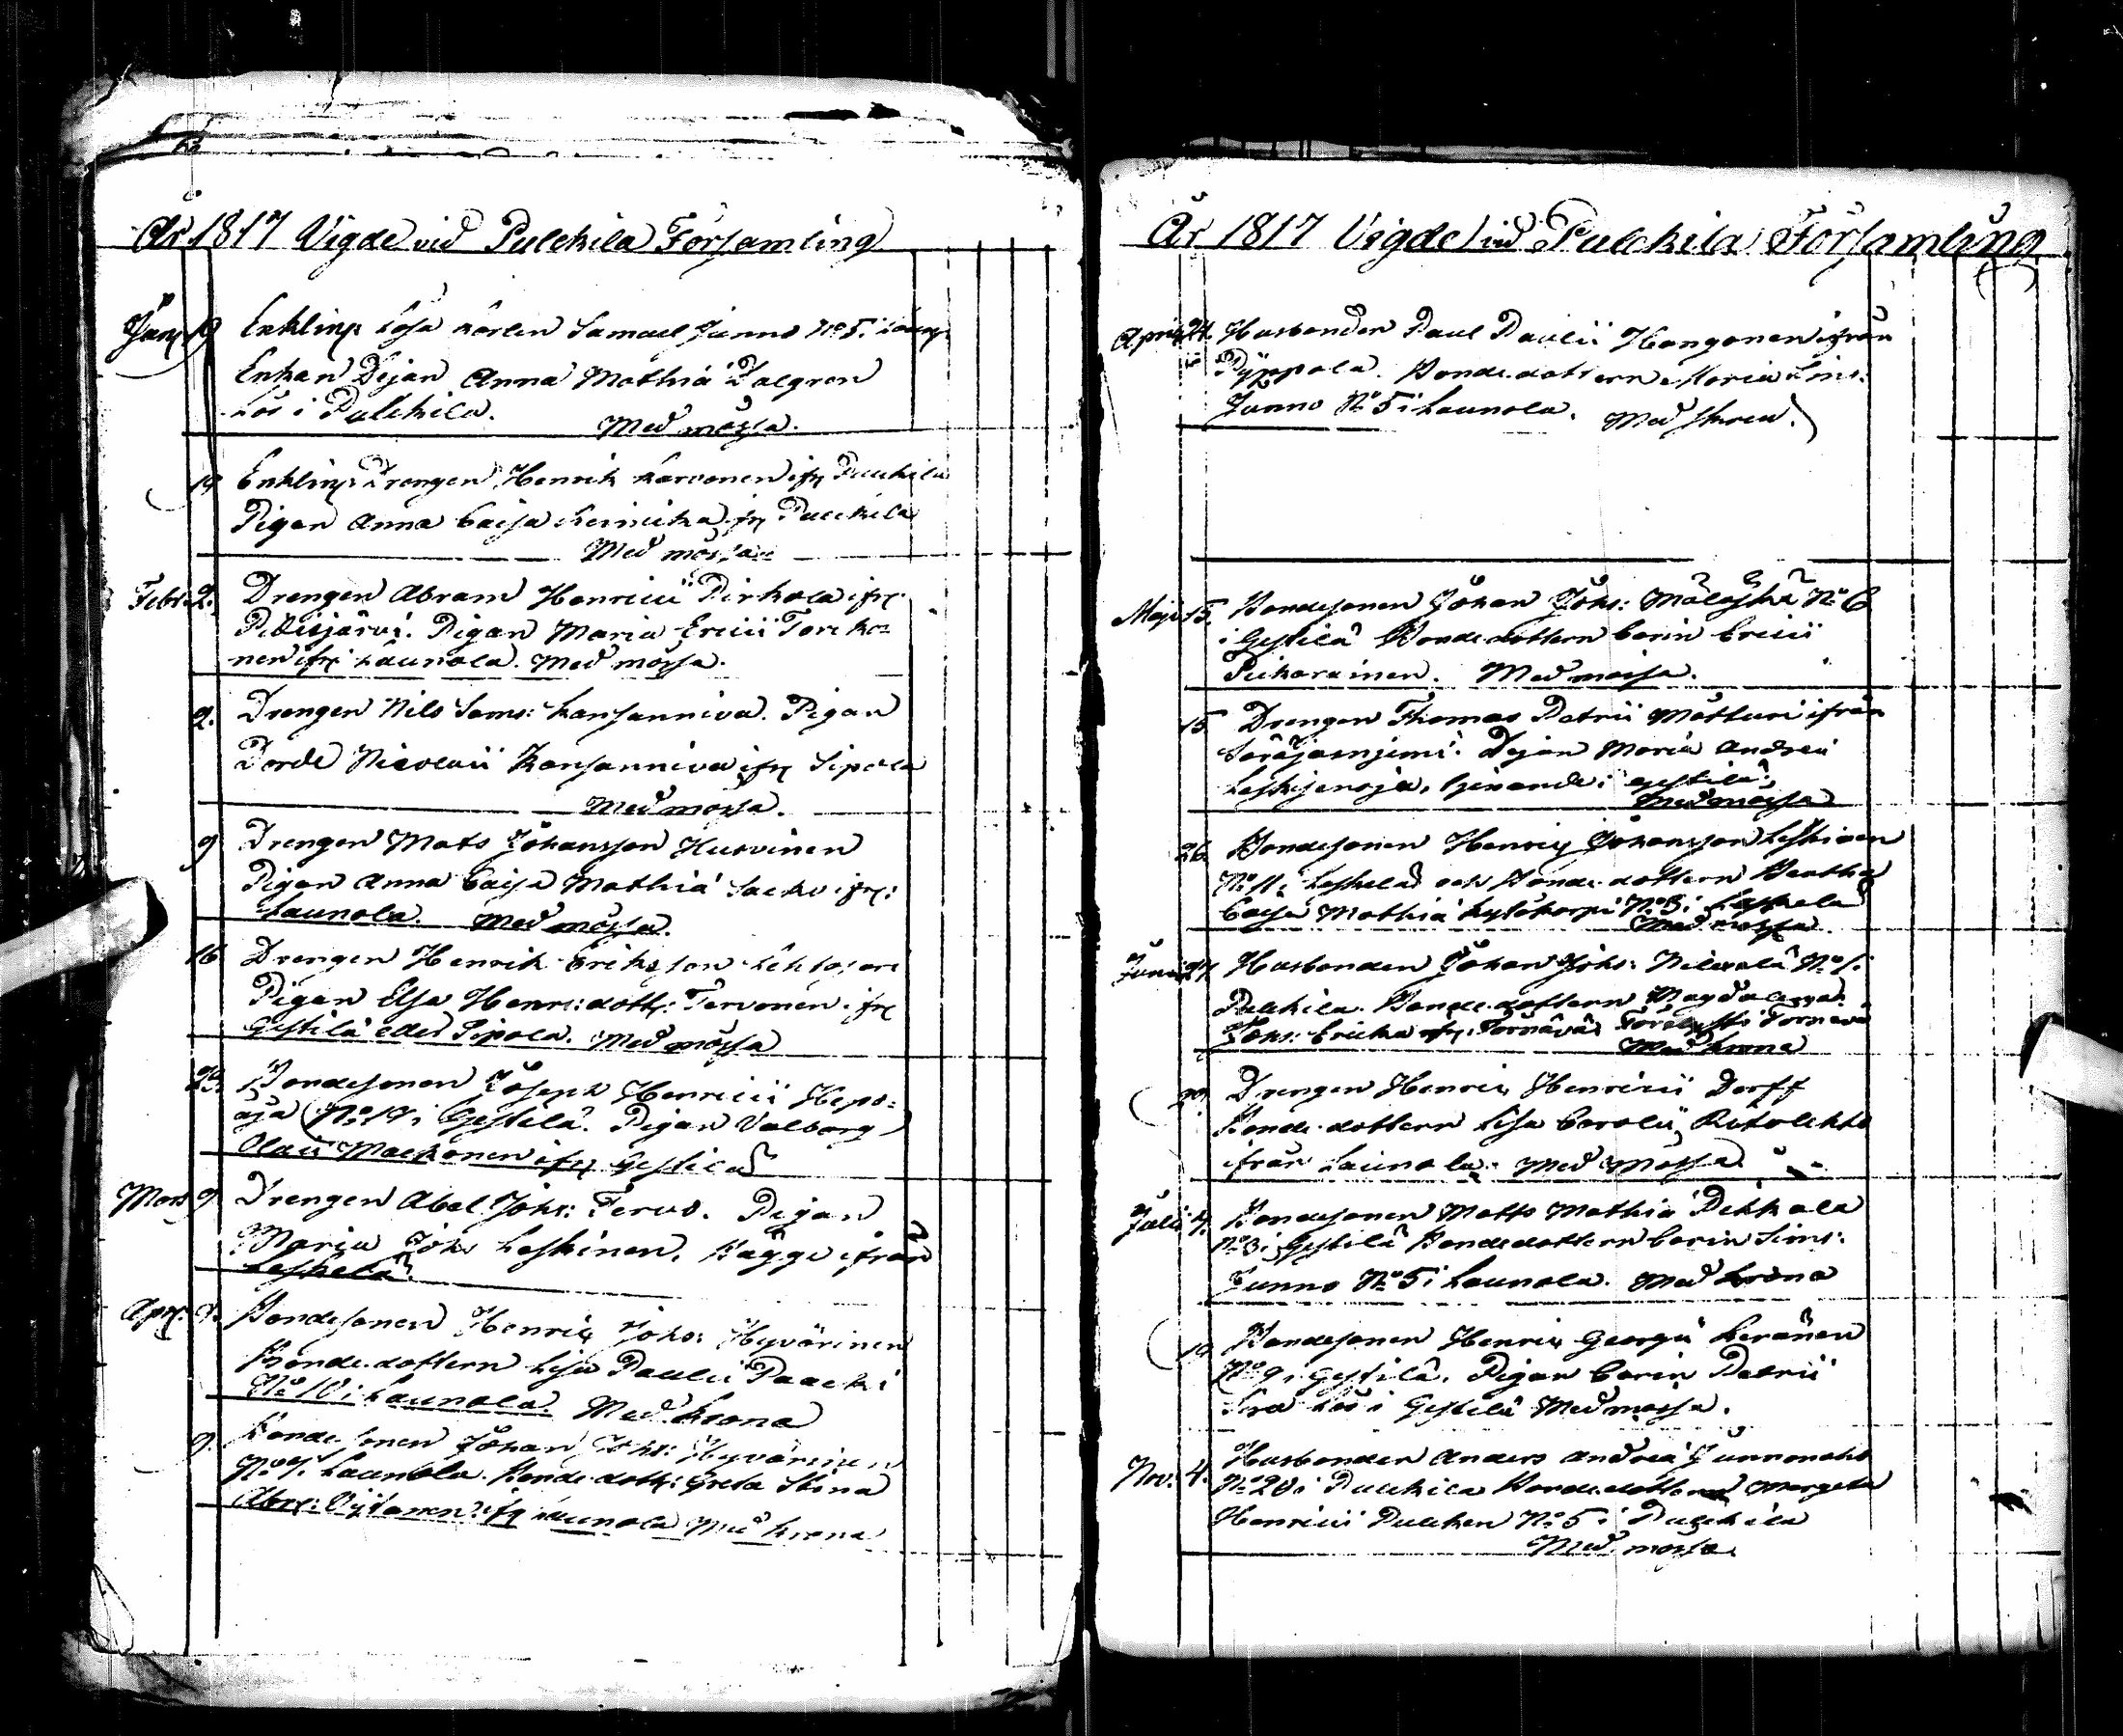 År 1817 Vigde vid Pulckila Församling
Janr 19 Enkling Lösa Karlen Samuel Junno No 5 i
Enkan Dejan Anna Mathiæ Dalgren
Lös i Pulckila. Med mössa.
19 Enkling Drengen Henrik Karvonen ifr Pulckila
Pigan Anna Caisa ifr Pulckila
Med mössa
Febr. 2. Drengen Abram Henrici Pirkola ifr
Piteisjärvi. Pigan Maria Ericii Toriko=
nen ifr Launola. Med mössa.
2. Drengen Nils Sams: Kansanniva. Pigan
Dorde Nicolaii Kansanniva ifr Sipola
Med mössa.
9 Drengen Mats Johansson Hurvinen
Pigan Anna Caisa Mathiæ ifr:
Launola. Med mössa.
16 Drengen Henrik Eriksson Lehtosare
Pigan Elsa Henr: dottr: Tervonen ifr
Gestilä eller Sipola. Med mössa
23. Bondesonen Joseph Henricii Hepo=
oja No 19 i Gestilä. Pigan Valborg
Olaii Mackonen ifr Gestilä
Mars 9 Drengen Abel Johs: Tervo. Pigan
Maria Johs Leskinen. Bägge ifrån
Leskelä.
Apr. 9. Bondesonen Henric Johs: Hyvärinen
Bondedottern Lisa Paulii Paacki
No 10 i Launola. Med Krona
9. Bondesonen Johan Johs: Hyvärinen
No 7. Launola. Bondedottr: Greta Stina
Abr: ifr Launola Med Krona
År 1817 Vigde vid Pulckila Församling
April 24. Husbonden Paul Paulii Kangonen ifrån
Pyppola. Bondedottern Maria Sims:
Junno No 5 i Launola. Med
Maji 15. Bondesonen Johan Johs: Mäläskä No 6
i Gestilä Bondedottern Carin Ericii
Pickarainen. Med mössa.
15 Drengen Thomas Petrii Matturi ifrån
Dejan Maria Andreæ
Leskijenoja, tjenande i Gestilä.
Med mössa
26. Bondesonen Henric Johansson Leskinen
No 11 i Leskelä och Bondedottern Beatha
Caisa Mathiæ Kytökorpi No 3 i Leskelä
Med mössa.
Junii 24. Husbonden Johan Johs: No 1.
Pulckila. Bondedottern Magdalena
Johs: Ericka ifr. Törnävä
Med Krona
29. Drengen Henric Henricii Dorff
Bondedottern Lisa Carolii Ritolehto
ifrån Launola. Med Mössa
Julii 4. Bondesonen Matts Mathiæ Pihkala
No 3 i Gestilä Bondedottern Carin Sims:
Junno No 5 i Launola. Med Krona
19 Bondesonen Henric Georgii Keränen
No 9 i Gestilä. Pigan Carin Petrii
Lös i Gestilä Med mössa.
Nov. 4. Husbonden Anders Andreæ Junnonaho
No 20 i Pulckila Bondedottern Margeta
Henricii Pulcken No 5 i Pulckila
Med mössa.